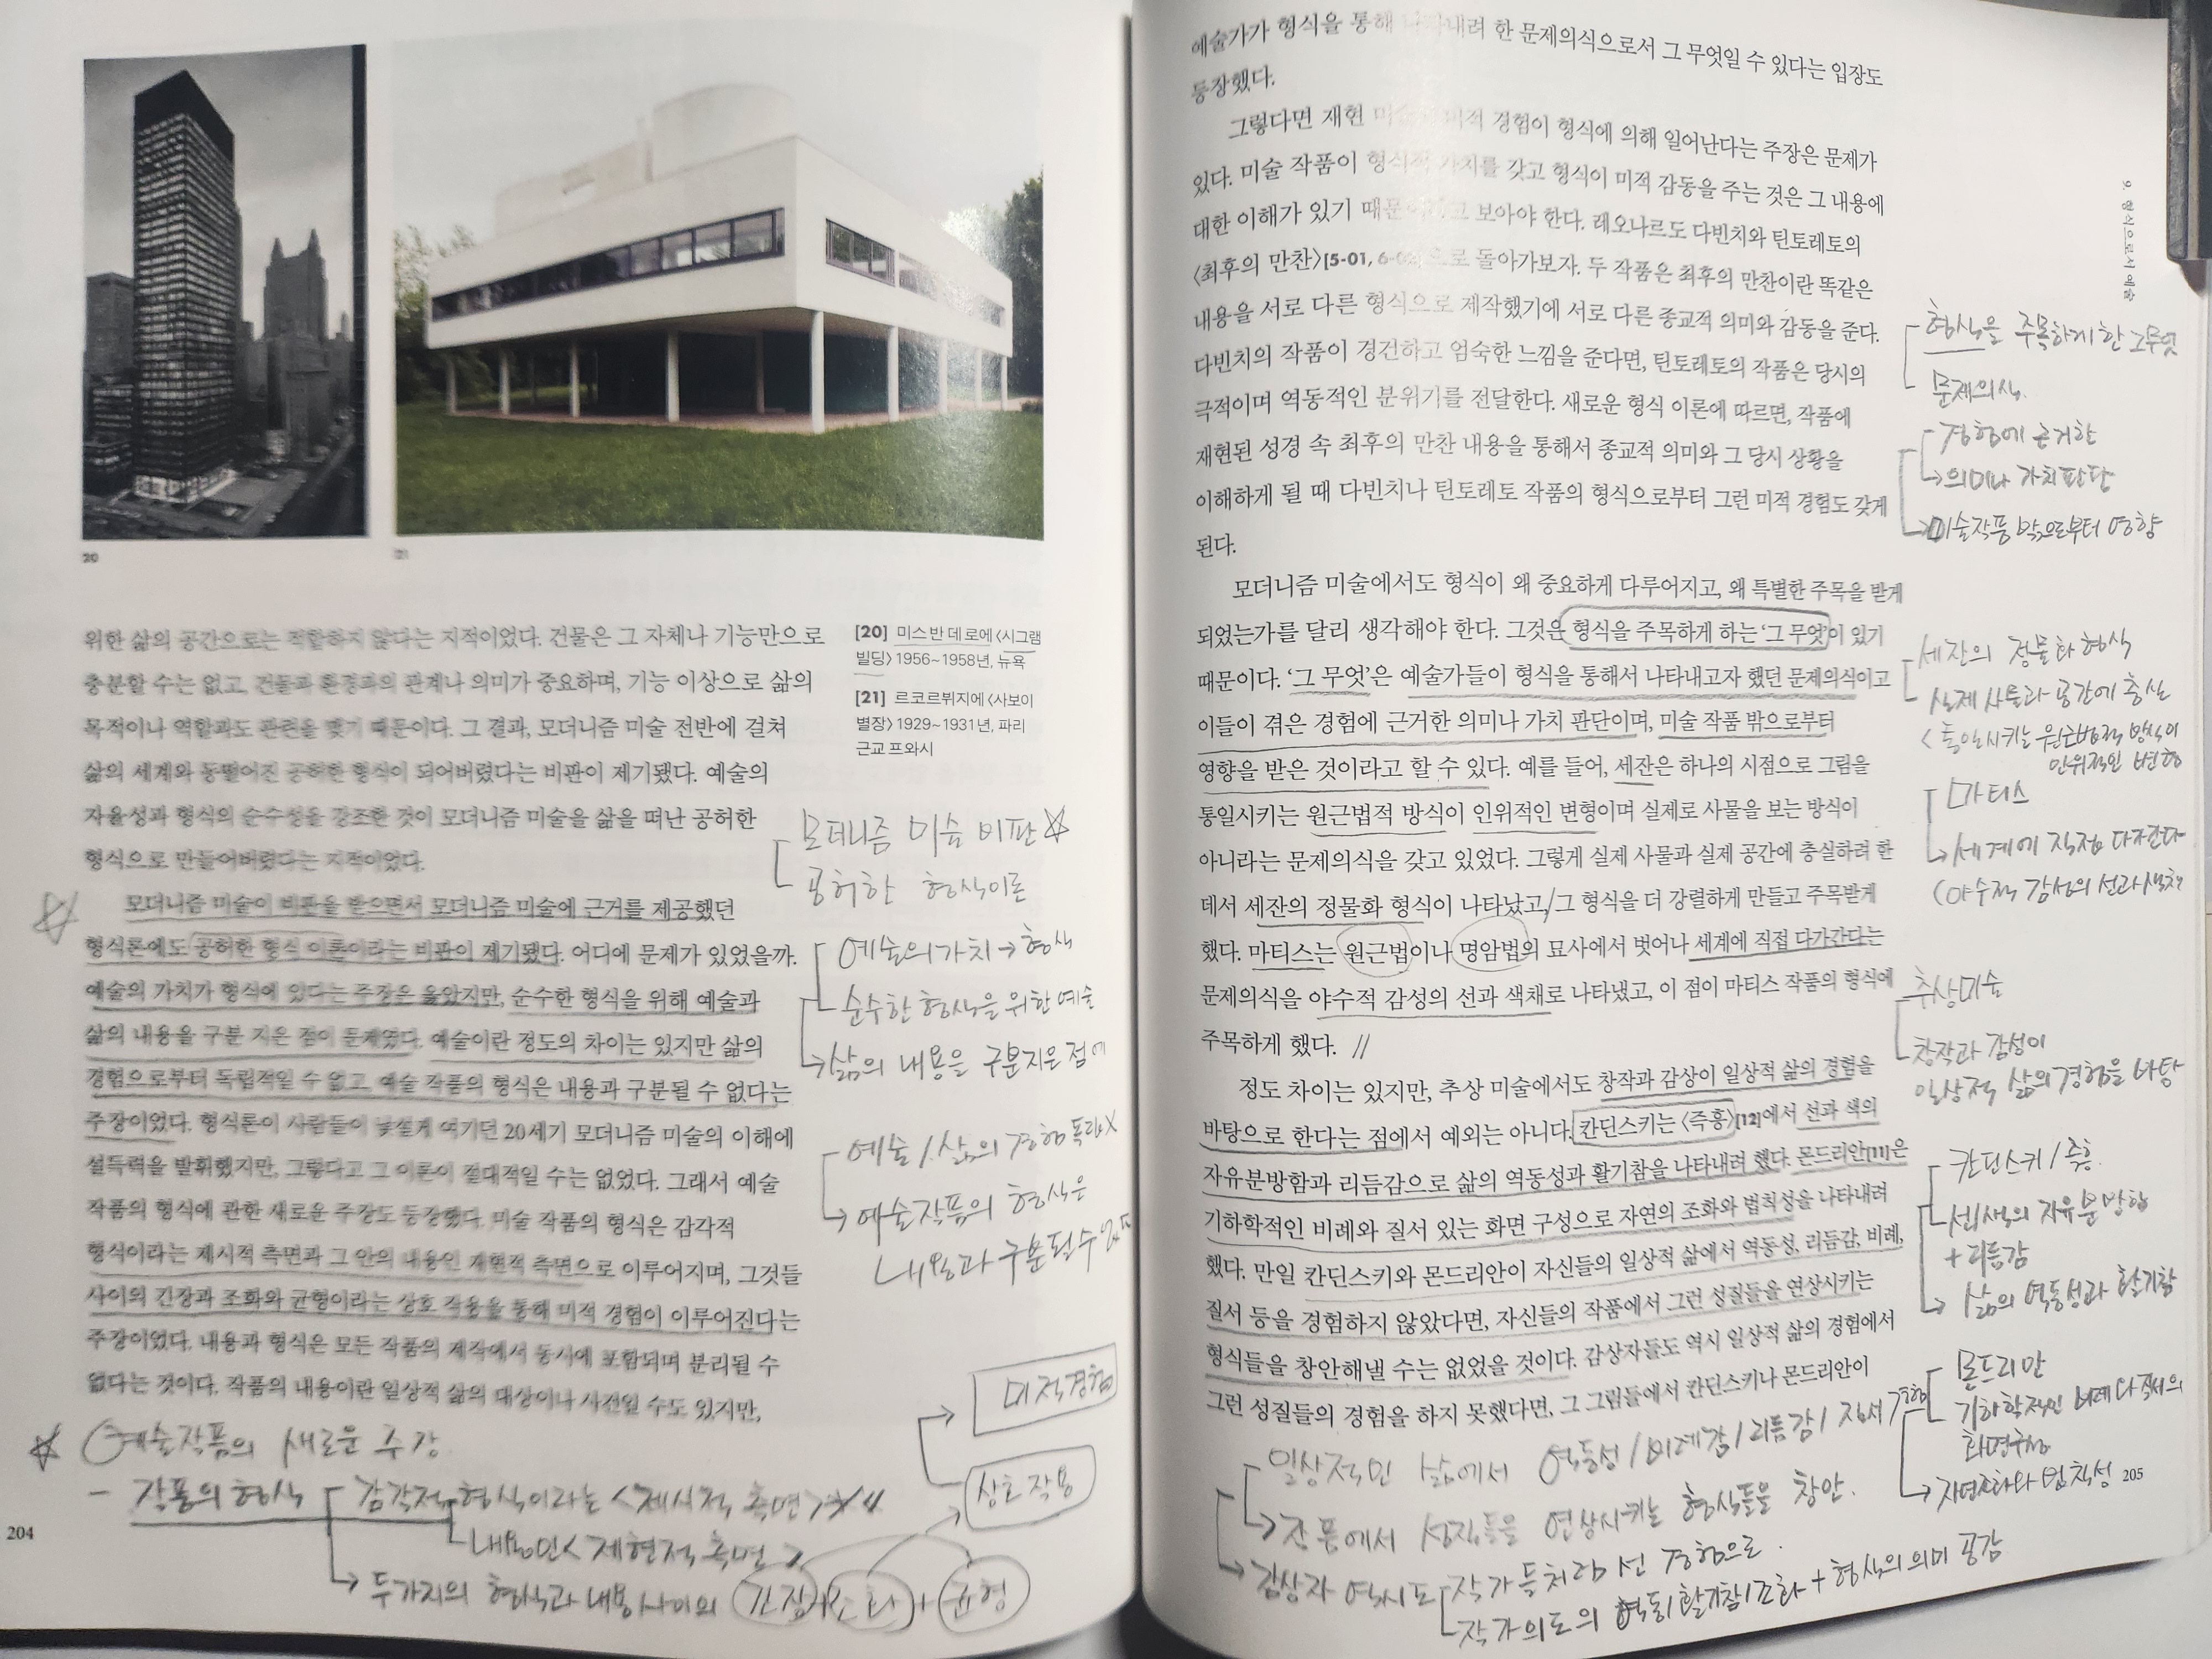 20
21
위한 삶의 공간으로는 적합하지 않다는 지적이었다. 건물은 그 자체나 기능만으로
충분할 수는 없고, 건물과 환경과의 관계나 의미가 중요하며, 기능 이상으로 삶의
목적이나 역할과도 관련을 맺기 때문이다. 그 결과, 모더니즘 미술 전반에 걸쳐
삶의 세계와 동떨어진 공허한 형식이 되어버렸다는 비판이 제기됐다. 예술의
자율성과 형식의 순수성을 강조한 것이 모더니즘 미술을 삶을 떠난 공허한
형식으로 만들어버렸다는 지적이었다.
모더니즘 미술이 비판을 받으면서 모더니즘 미술에 근거를 제공했던
형식론에도 공허한 형식 이론이라는 비판이 제기됐다. 어디에 문제가 있었을까.
예술의 가치가 형식에 있다는 주장은 옳았지만, 순수한 형식을 위해 예술과
삶의 내용을 구분 지은 점이 문제였다. 예술이란 정도의 차이는 있지만 삶의
경험으로부터 독립적일 수 없고, 예술 작품의 형식은 내용과 구분될 수 없다는
주장이었다. 형식론이 사람들이 낯설게 여기던 20세기 모더니즘 미술의 이해에
설득력을 발휘했지만, 그렇다고 그 이론이 절대적일 수는 없었다. 그래서 예술
작품의 형식에 관한 새로운 주장도 등장했다. 미술 작품의 형식은 감각적
형식이라는 제시적 측면과 그 안의 내용인 재현적 측면으로 이루어지며, 그것들
사이의 긴장과 조화와 균형이라는 상호 작용을 통해 미적 경험이 이루어진다는
주장이었다. 내용과 형식은 모든 작품의 제작에서 동시에 포함되며 분리될 수
없다는 것이다. 작품의 내용이란 일상적 삶의 대상이나 사건일 수도 있지만,
[20] 미스 반 데 로에 〈시그램
빌딩〉 1956~1958년, 뉴욕
[21] 르코르뷔지에 〈사보이
별장〉 1929~1931년, 파리
근교 프와시
모더니즘 미술 비판
공허한 형식이론
예술의 가치 → 형식
순수한 형식을 위한 예술
삶의 내용을 구분지은 점에
예술 / 삶의 경험 독립X
예술작품의 형식은
내용과 구분될 수 없다
예술작품의 새로운 주장
- 작품의 형식 감각적 형식이라는 <제시적 측면>
내용인 <재현적 측면>
두가지의 형식과 내용 사이의 긴장+조화+균형
상호작용
미적경험
204
예술가가 형식을 통해 나타내려 한 문제의식으로서 그 무엇일 수 있다는 입장도
등장했다.
그렇다면 재현 미 경험이 형식에 의해 일어난다는 주장은 문제가
있다. 미술 작품이 형식적 가치를 갖고 형식이 미적 감동을 주는 것은 그 내용에
대한 이해가 있기 때문이라고 보아야 한다. 레오나르도 다빈치와 틴토레토의
〈최후의 만찬〉[5-01, 으로 돌아가보자. 두 작품은 최후의 만찬이란 똑같은
내용을 서로 다른 형식으로 제작했기에 서로 다른 종교적 의미와 감동을 준다.
다빈치의 작품이 경건하고 엄숙한 느낌을 준다면, 틴토레토의 작품은 당시의
극적이며 역동적인 분위기를 전달한다. 새로운 형식 이론에 따르면, 작품에
재현된 성경 속 최후의 만찬 내용을 통해서 종교적 의미와 그 당시 상황을
이해하게 될 때 다빈치나 틴토레토 작품의 형식으로부터 그런 미적 경험도 갖게
된다.
모더니즘 미술에서도 형식이 왜 중요하게 다루어지고, 왜 특별한 주목을 받게
되었는가를 달리 생각해야 한다. 그것은 형식을 주목하게 하는 ‘그 무엇’이 있기
때문이다. ‘그 무엇’은 예술가들이 형식을 통해서 나타내고자 했던 문제의식이고
이들이 겪은 경험에 근거한 의미나 가치 판단이며, 미술 작품 밖으로부터
영향을 받은 것이라고 할 수 있다. 예를 들어, 세잔은 하나의 시점으로 그림을
통일시키는 원근법적 방식이 인위적인 변형이며 실제로 사물을 보는 방식이
아니라는 문제의식을 갖고 있었다. 그렇게 실제 사물과 실제 공간에 충실하려 한
데서 세잔의 정물화 형식이 나타났고, 그 형식을 더 강렬하게 만들고 주목받게
했다. 마티스는 원근법이나 명암법의 묘사에서 벗어나 세계에 직접 다가간다는
문제의식을 야수적 감성의 선과 색채로 나타냈고, 이 점이 마티스 작품의 형식에
주목하게 했다. //
정도 차이는 있지만, 추상 미술에서도 창작과 감상이 일상적 삶의 경험을
바탕으로 한다는 점에서 예외는 아니다. 칸딘스키는 〈즉흥〉[12]에서 선과 색의
자유분방함과 리듬감으로 삶의 역동성과 활기참을 나타내려 했다. 몬드리안[11]은
기하학적인 비례와 질서 있는 화면 구성으로 자연의 조화와 법칙성을 나타내려
했다. 만일 칸딘스키와 몬드리안이 자신들의 일상적 삶에서 역동성, 리듬감, 비례,
질서 등을 경험하지 않았다면, 자신들의 작품에서 그런 성질들을 연상시키는
형식들을 창안해낼 수는 없었을 것이다. 감상자들도 역시 일상적 삶의 경험에서
그런 성질들의 경험을 하지 못했다면, 그 그림들에서 칸딘스키나 몬드리안이
9. 형식으로서 예술
형식을 주목하게 한 그무엇
문제의식.
경험에 근거한
의미나 가치판단
미술작품 밖으로부터 영향
세잔의 정물화 형식
실제 사물과 공간에 충실
< 통일시키는 원근법적 방식이
인위적인 변형
마티스
세계에 직접 다가간다
(야수적 감성의 선과 색채
추상미술
창작과 감상이
일상적 삶의 경험을 바탕
칸딘스키 / 즉흥.
선/색의 자유분방함
+ 리듬감
삶의 역동성과 활기참
몬드리안
기하학적인 비례와 질서의
화면구성
자연조화와 법칙성
일상적인 삶에서 역동성 / 비례감 / 리듬감 / 질서 경험
작품에서 성질들을 연상시키는 형식들을 창안.
감상자 역시도 작가들처럼 선 경험으로.
작가의도의 역동/활기참/조화 + 형식의 의미 공감
205